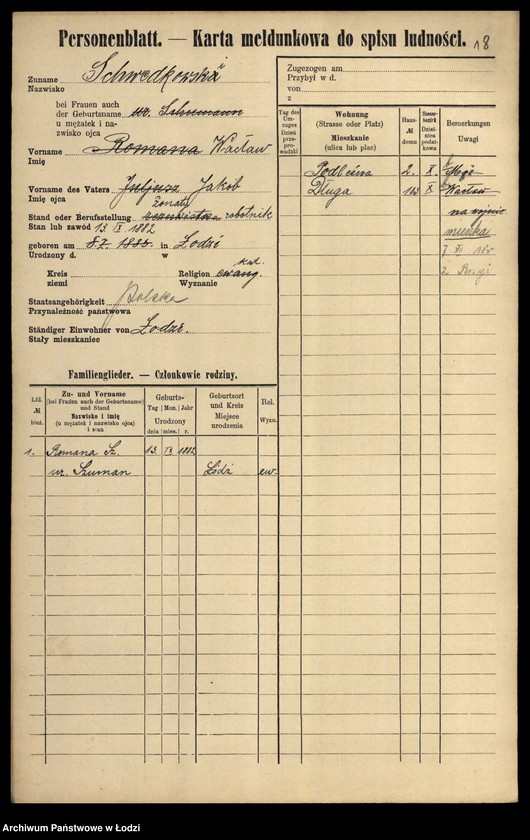 Personenblatt. — Karta meldunkowa do spisu ludności. 18
Zuname Schwedkowska
Nazwisko
bei Frauen auch
der Geburtsname ur. Schumann
u mężatek i na-
zwisko ojca
Vorname Romana Wacław
Imię
Vorname des Vaters Juljusz Jakób
Imię ojca żonaty
Stand oder Berufsstellung robotnik
Stan lub zawód 13 IX 1882
geboren am 8.7. 1888. in Łodzi
Urodzony d. w
kat.
Kreis Religion ewang.
ziemi Wyznanie
Staatsangehörigkeit Polska
Przynależność państwowa
Ständiger Einwohner von Łodzi.
Stały mieszkaniec
Zugezogen am
Przybył w d.
von
z
Tag des Um-
zuges
Dzień
prze-
prowadzki
Wohnung
(Strasse oder Platz)
Mieszkanie
(ulica lub plac)
Haus-
№
domu
Steuer-
bezirk
Dzielni-
ca
podat-
kowa
Bemerkungen
Uwagi
Podleśna 2. X. Mąż
Długa 113 X Wacław
na wojnie
mieszka
z Rosji
Familienglieder. — Członkowie rodziny.
Lfd.
№
bież.
Zu- und Vorname
(bei Frauen auch der Geburtsname)
und Stand
Nazwisko i imię
(u mężatek i nazwisko ojca)
i stan
Geburts-
Tag Mon. Jahr
Urodzony
dnia mies. r.
Geburtsort
und Kreis
Miejsce
urodzenia
Rel.
Wyzn.
1. Romana Sz. 13. IX 1882
ur. Szuman Łódź ew.
Archiwum Państwowe w Łodzi